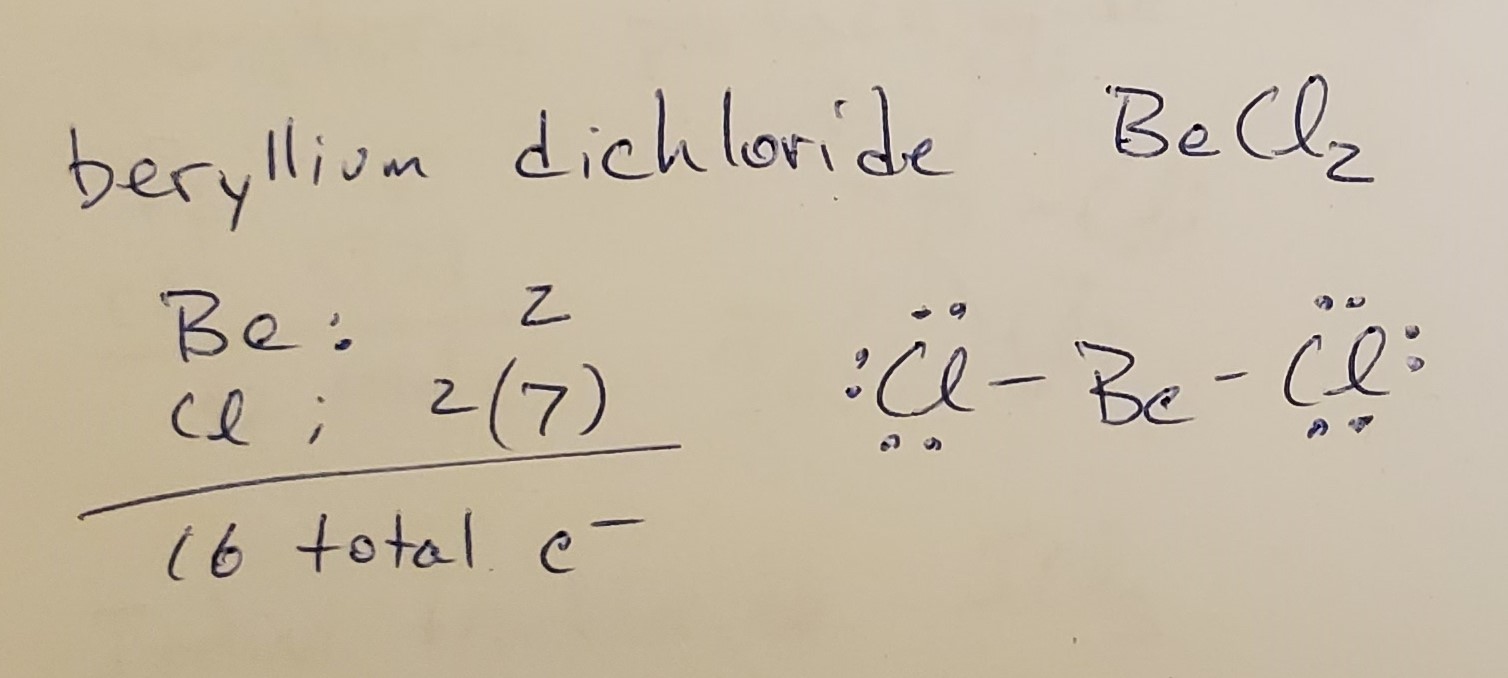 beryllium dichloride BeCl₂
Be: 2
Cl; 2(7)
16 total e⁻
:C̈l̤ - Be - C̈l̤: